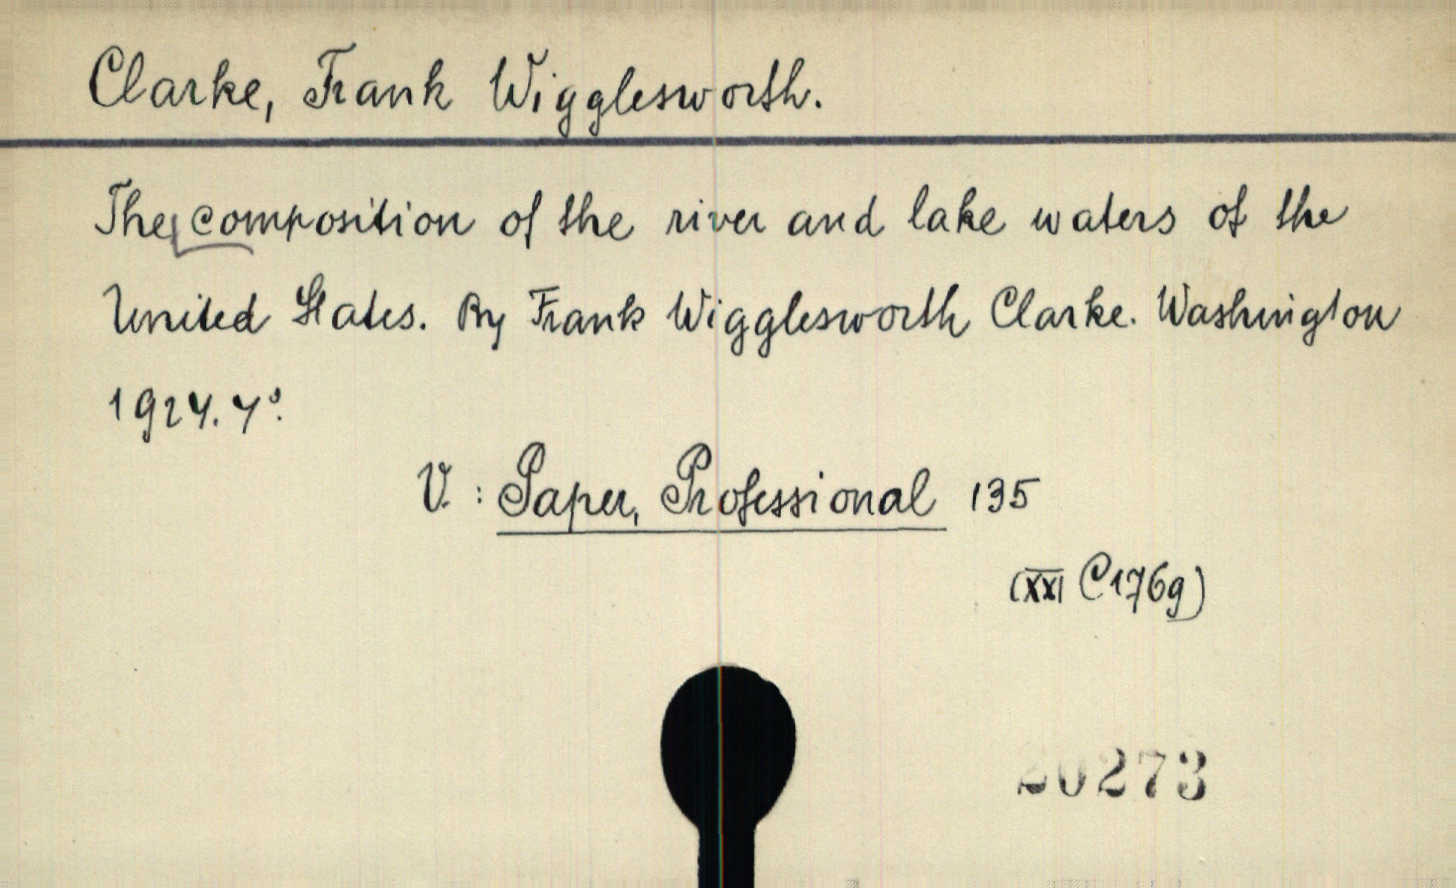 Clarke, Frank Wigglesworth.
The composition of the river and lake waters of the
United States. By Frank Wigglesworth Clarke. Washington
1924. 4°.
V.: Paper, Professional 135
(XXI C176g)
20273